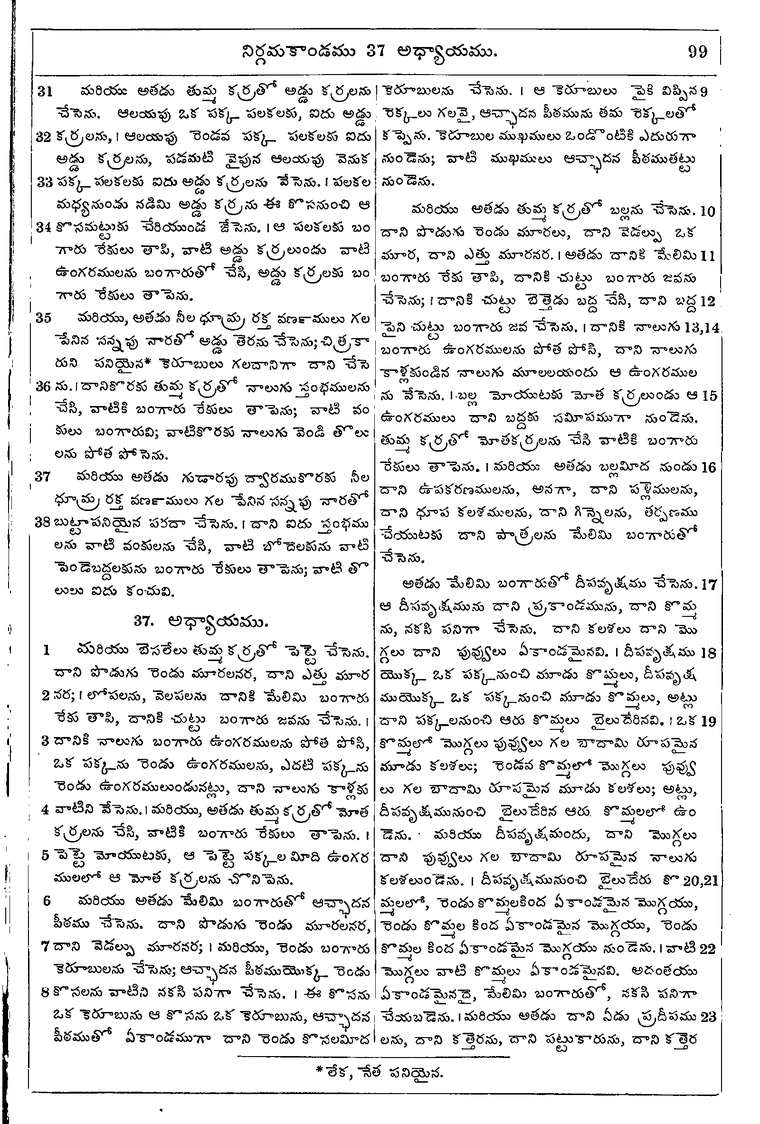 నిర్గమకాండము 37 అధ్యాయము. 99
31 మరియు అతడు తుమ్మ కర్రతో అడ్డు కర్రలను
చేసెను. ఆలయపు ఒక పక్క పలకలకు, ఐదు అడ్డు
32 కర్రలను, । ఆలయపు రెండవ పక్క పలకలకు ఐదు
అడ్డు కర్రలను, పడమటి వైపున ఆలయపు వెనుక
33 పక్క పలకలకు ఐదు అడ్డు కర్రలను వేసెను. । పలకల
మధ్యనుండు నడిమి అడ్డు కర్రను ఈ కొసనుంచి ఆ
34 కొసమట్టుకు చేరియుండ జేసెను. । ఆ పలకలకు బం
గారు రేకులు తాపి, వాటి అడ్డు కర్రలుందు వాటి
ఉంగరములను బంగారుతో చేసి, అడ్డు కర్రలకు బం
గారు రేకులు తాపెను.
35 మరియు, అతడు నీల ధూమ్ర రక్త వర్ణములు గల
పేనిన సన్నపు నారతో అడ్డు తెరను చేసెను; చిత్రకా
రుని పనియైన* కెరూబులు గలదానిగా దాని చేసె
36 ను. । దానికొరకు తుమ్మ కర్రతో నాలుగు స్తంభములను
చేసి, వాటికి బంగారు రేకులు తాపెను; వాటి వం
కులు బంగారువి; వాటికొరకు నాలుగు వెండి తొలు
లను పోత పోసెను.
37 మరియు అతడు గుడారపు ద్వారముకొరకు నీల
ధూమ్ర రక్త వర్ణములు గల పేనిన సన్నపు నారతో
38 బుట్టాపనియైన పరదా చేసెను. । దాని ఐదు స్తంభము
లను వాటి వంకులను చేసి, వాటి బోదెలకును వాటి
పెండెబద్దలకును బంగారు రేకులు తాపెను; వాటి తొ
లులు ఐదు కంచువి.
37. అధ్యాయము.
1 మరియు బెసలేలు తుమ్మ కర్రతో పెట్టె చేసెను.
దాని పొడుగు రెండు మూరలనర, దాని ఎత్తు మూర
2 నర; । లోపలను, వెలపలను దానికి మేలిమి బంగారు
రేకు తాపి, దానికి చుట్టు బంగారు జవను చేసెను. ।
3 దానికి నాలుగు బంగారు ఉంగరములను పోత పోసి,
ఒక పక్కను రెండు ఉంగరములను, ఎదటి పక్కను
రెండు ఉంగరములుండునట్లు, దాని నాలుగు కాళ్లకు
4 వాటిని వేసెను. । మరియు, అతడు తుమ్మ కర్రతో మోత
కర్రలను చేసి, వాటికి బంగారు రేకులు తాపెను. ।
5 పెట్టె మోయుటకు, ఆ పెట్టె పక్కల మీది ఉంగర
ములలో ఆ మోత కర్రలను చొనిపెను.
6 మరియు అతడు మేలిమి బంగారుతో ఆచ్ఛాదన
పీఠము చేసెను. దాని పొడుగు రెండు మూరలనర,
7 దాని వెడల్పు మూరనర; । మరియు, రెండు బంగారు
కెరూబులను చేసెను; ఆచ్ఛాదన పీఠముయొక్క రెండు
8 కొసలను వాటిని నకసి పనిగా చేసెను. । ఈ కొసను
ఒక కెరూబును ఆ కొసను ఒక కెరూబును, ఆచ్ఛాదన
పీఠముతో ఏకాండముగా దాని రెండు కొసలమీద
కెరూబులను చేసెను. । ఆ కెరూబులు పైకి విప్పిన 9
రెక్కలు గలవై, ఆచ్ఛాదన పీఠమును తమ రెక్కలతో
కప్పెను. కెరూబుల ముఖములు ఒండొంటికి ఎదురుగా
నుండెను; వాటి ముఖములు ఆచ్ఛాదన పీఠముతట్టు
నుండెను.
మరియు అతడు తుమ్మ కర్రతో బల్లను చేసెను. 10
దాని పొడుగు రెండు మూరలు, దాని వెడల్పు ఒక
మూర, దాని ఎత్తు మూరనర. । అతడు దానికి మేలిమి 11
బంగారు రేకు తాపి, దానికి చుట్టు బంగారు జవను
చేసెను; । దానికి చుట్టు బెత్తెడు బద్ద చేసి, దాని బద్ద 12
పైని చుట్టు బంగారు జవ చేసెను. । దానికి నాలుగు 13,14
బంగారు ఉంగరములను పోత పోసి, దాని నాలుగు
కాళ్లకుండిన నాలుగు మూలలయందు ఆ ఉంగరముల
ను వేసెను. । బల్ల మోయుటకు మోత కర్రలుండు ఆ 15
ఉంగరములు దాని బద్దకు సమీపముగా నుండెను.
తుమ్మ కర్రతో మోతకర్రలను చేసి వాటికి బంగారు
రేకులు తాపెను. । మరియు అతడు బల్లమీద నుండు 16
దాని ఉపకరణములను, అనగా, దాని పళ్లెములను,
దాని ధూప కలశములను, దాని గిన్నెలను, తర్పణము
చేయుటకు దాని పాత్రలను మేలిమి బంగారుతో
చేసెను.
అతడు మేలిమి బంగారుతో దీపవృక్షము చేసెను. 17
ఆ దీపవృక్షమును దాని ప్రకాండమును, దాని కొమ్మ
ను, నకసి పనిగా చేసెను. దాని కలశలు దాని మొ
గ్గలు దాని పువ్వులు ఏకాండమైనవి. । దీపవృక్షము 18
యొక్క ఒక పక్కనుంచి మూడు కొమ్మలు, దీపవృక్ష
ముయొక్క ఒక పక్కనుంచి మూడు కొమ్మలు, అట్లు
దాని పక్కలనుంచి ఆరు కొమ్మలు బైలుదేరినవి. । ఒక 19
కొమ్మలో మొగ్గలు పువ్వులు గల బాదామి రూపమైన
మూడు కలశలు; రెండవ కొమ్మలో మొగ్గలు పువ్వు
లు గల బాదామి రూపమైన మూడు కలశలు; అట్లు,
దీపవృక్షమునుంచి బైలుదేరిన ఆరు కొమ్మలలో ఉం
డెను. మరియు దీపవృక్షమందు, దాని మొగ్గలు
దాని పువ్వులు గల బాదామి రూపమైన నాలుగు
కలశలుండెను. । దీపవృక్షమునుంచి బైలుదేరు కొ 20,21
మ్మలలో, రెండు కొమ్మలకింద ఏకాండమైన మొగ్గయు,
రెండు కొమ్మల కింద ఏకాండమైన మొగ్గయు, రెండు
కొమ్మల కింద ఏకాండమైన మొగ్గయు నుండెను. । వాటి 22
మొగ్గలు వాటి కొమ్మలు ఏకాండమైనవి. అదంతయు
ఏకాండమైనదై, మేలిమి బంగారుతో, నకసి పనిగా
చేయబడెను. । మరియు అతడు దాని ఏడు ప్రదీపము 23
లను, దాని కత్తెరను, దాని పట్టుకారును, దాని కత్తెర
* లేక, నేత పనియైన.